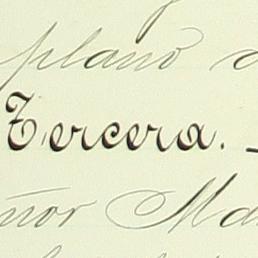 plano
Tercera. -
ñor Ma